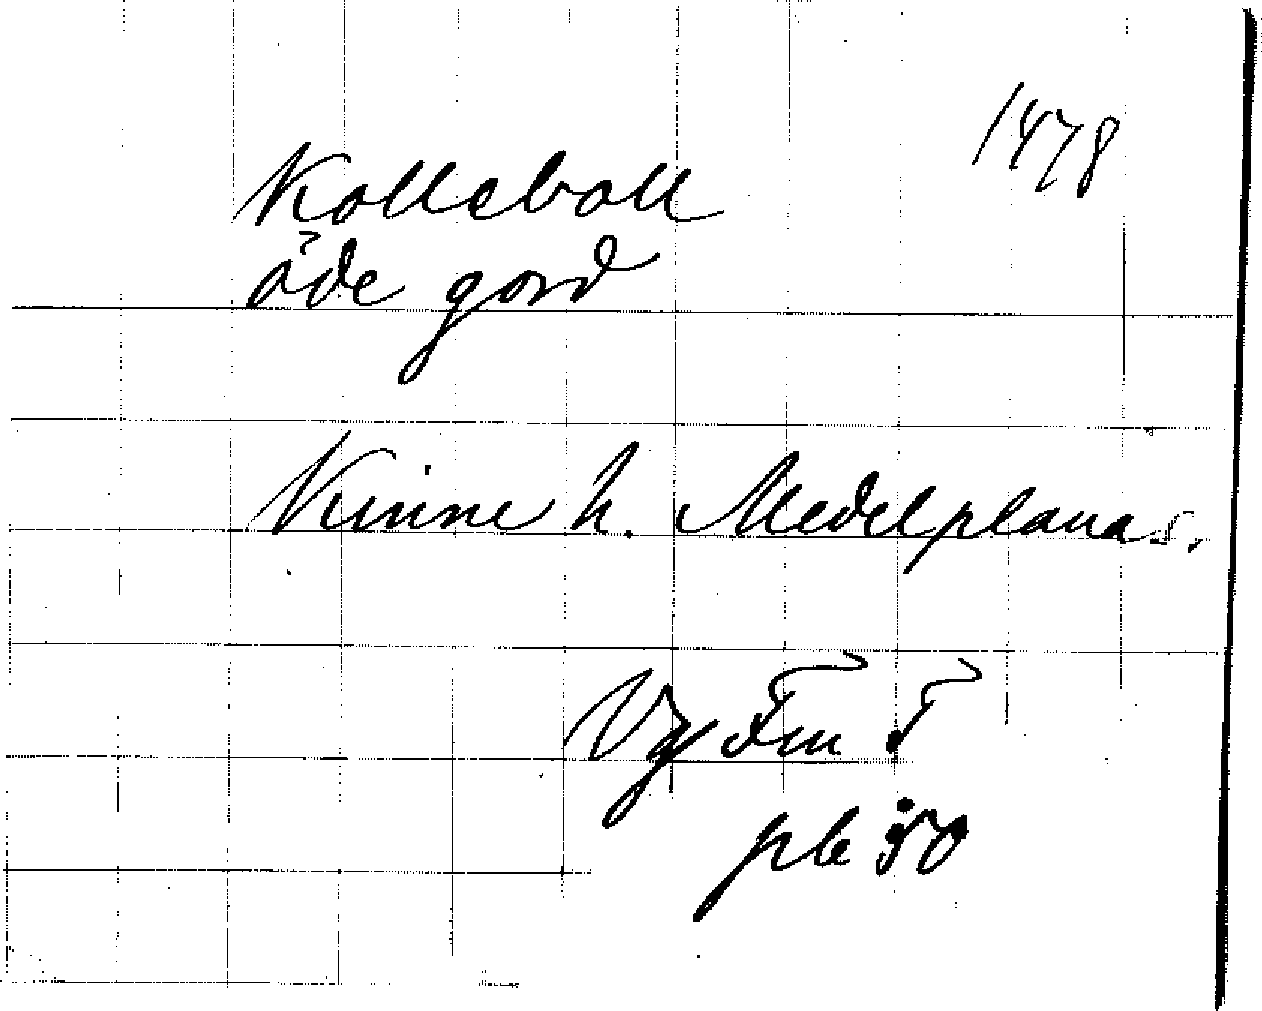 1478
Kolleboll
öde gord
Kinne h. Medelplana s.
Vg Fru F
ple 50